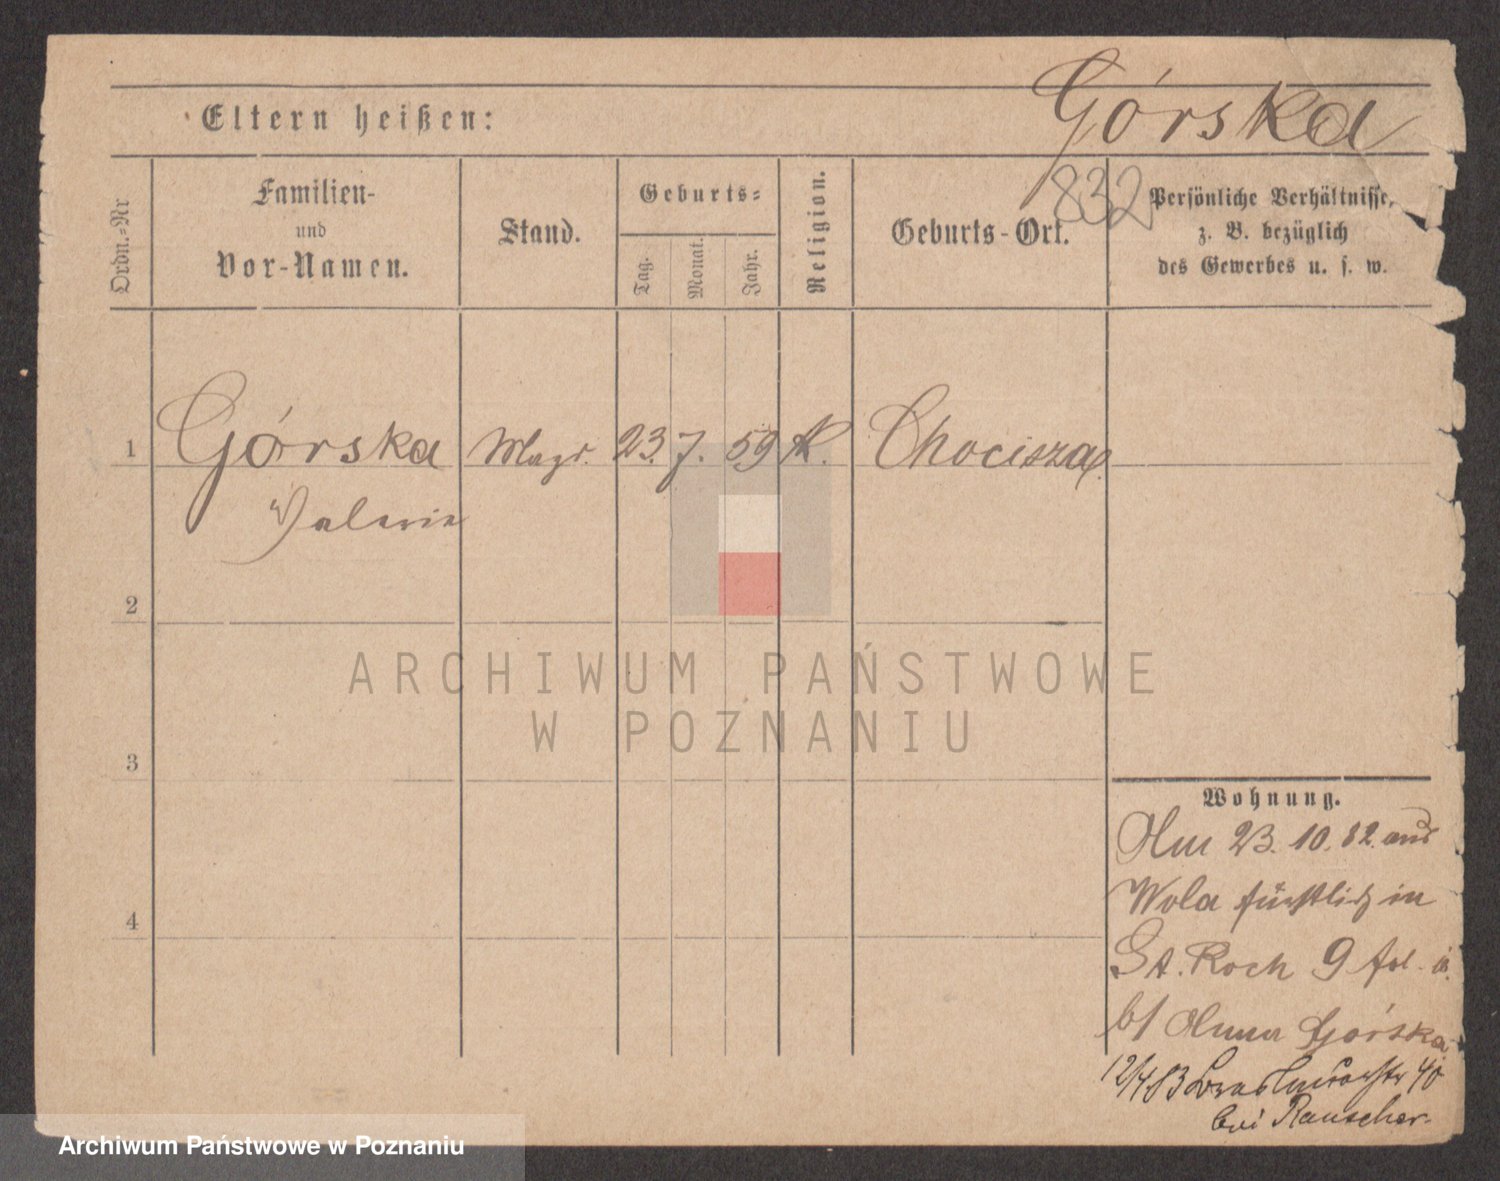 Górska
Eltern heißen:
832
Ordn.-Nr
Familien-
und
Vor-Namen.
Stand.
Geburts-
Tag.
Monat.
Jahr.
Religion.
Geburts-Ort.
Persönliche Verhältnisse,
z. B. bezüglich
des Gewerbes u. s. w.
1 Górska Magd. 23. 7. 59 K. Chocisza
Valerie
2
3
4
Wohnung.
23. 10. 82. aus
Wola in
St. Roch 9
bf Anna Górska
12/4 83 40
bei Rauscher
ARCHIWUM PAŃSTWOWE
W POZNANIU
Archiwum Państwowe w Poznaniu